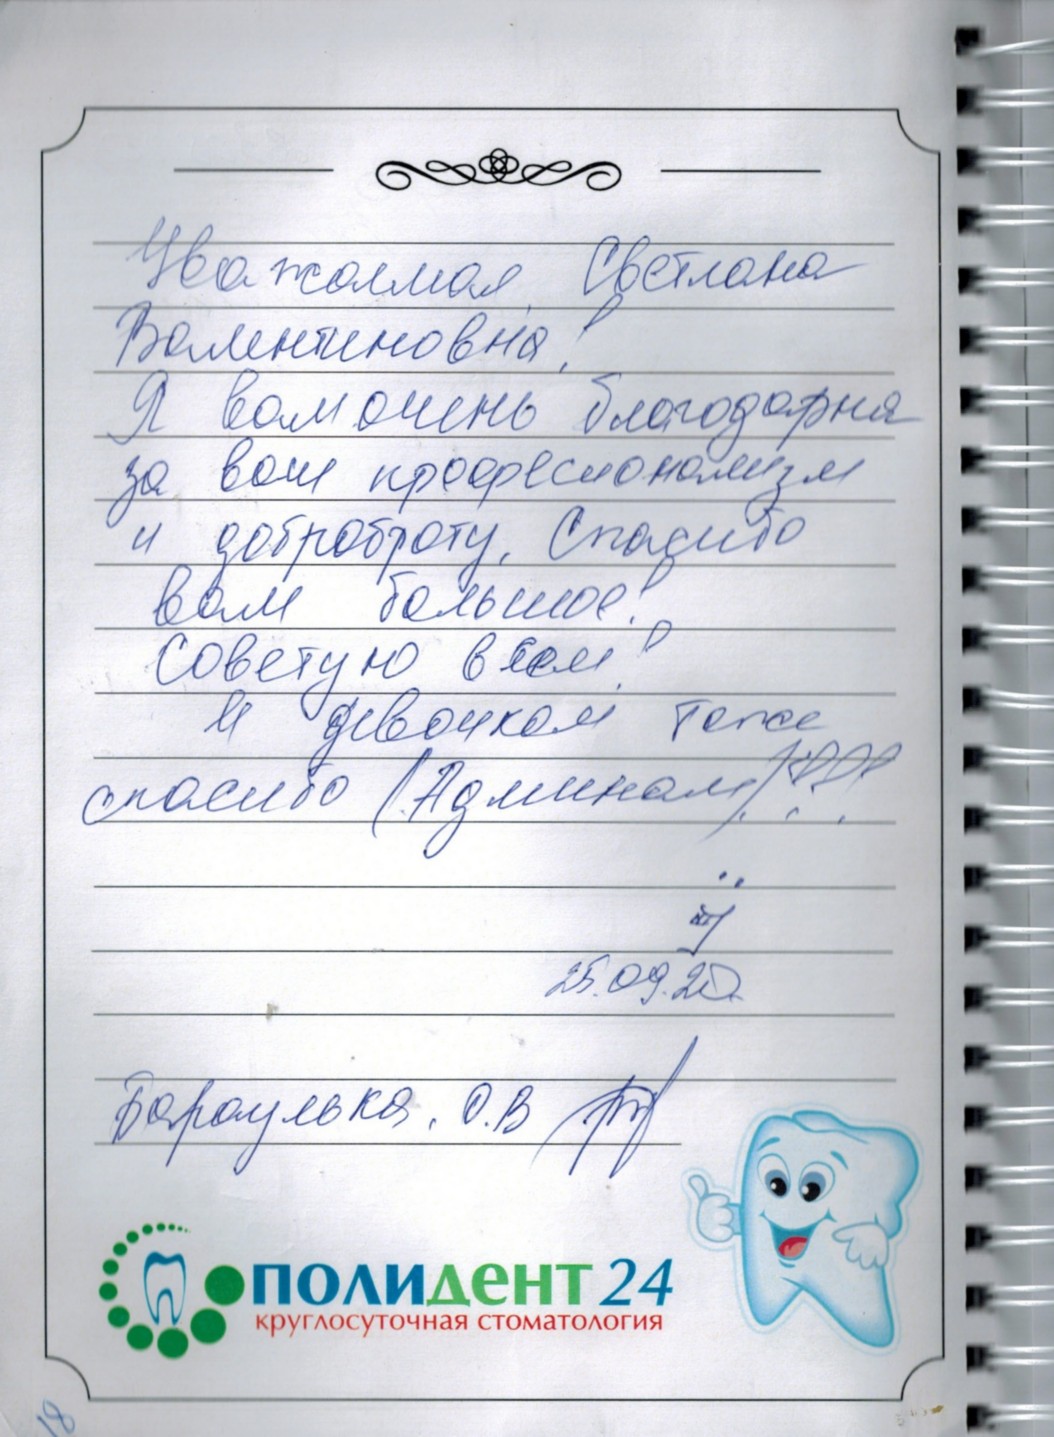 Уважаемая Светлана
Валентиновна!
Я вам очень благодарна
за ваш професионализм
и доброброту. Спасибо
вам большое!
Советую всем!
И девочкам тоже
спасибо (Админам)!!!
25.09.20.
Бараулька. О.В
ПОЛИДЕНТ 24
круглосуточная стоматология
18